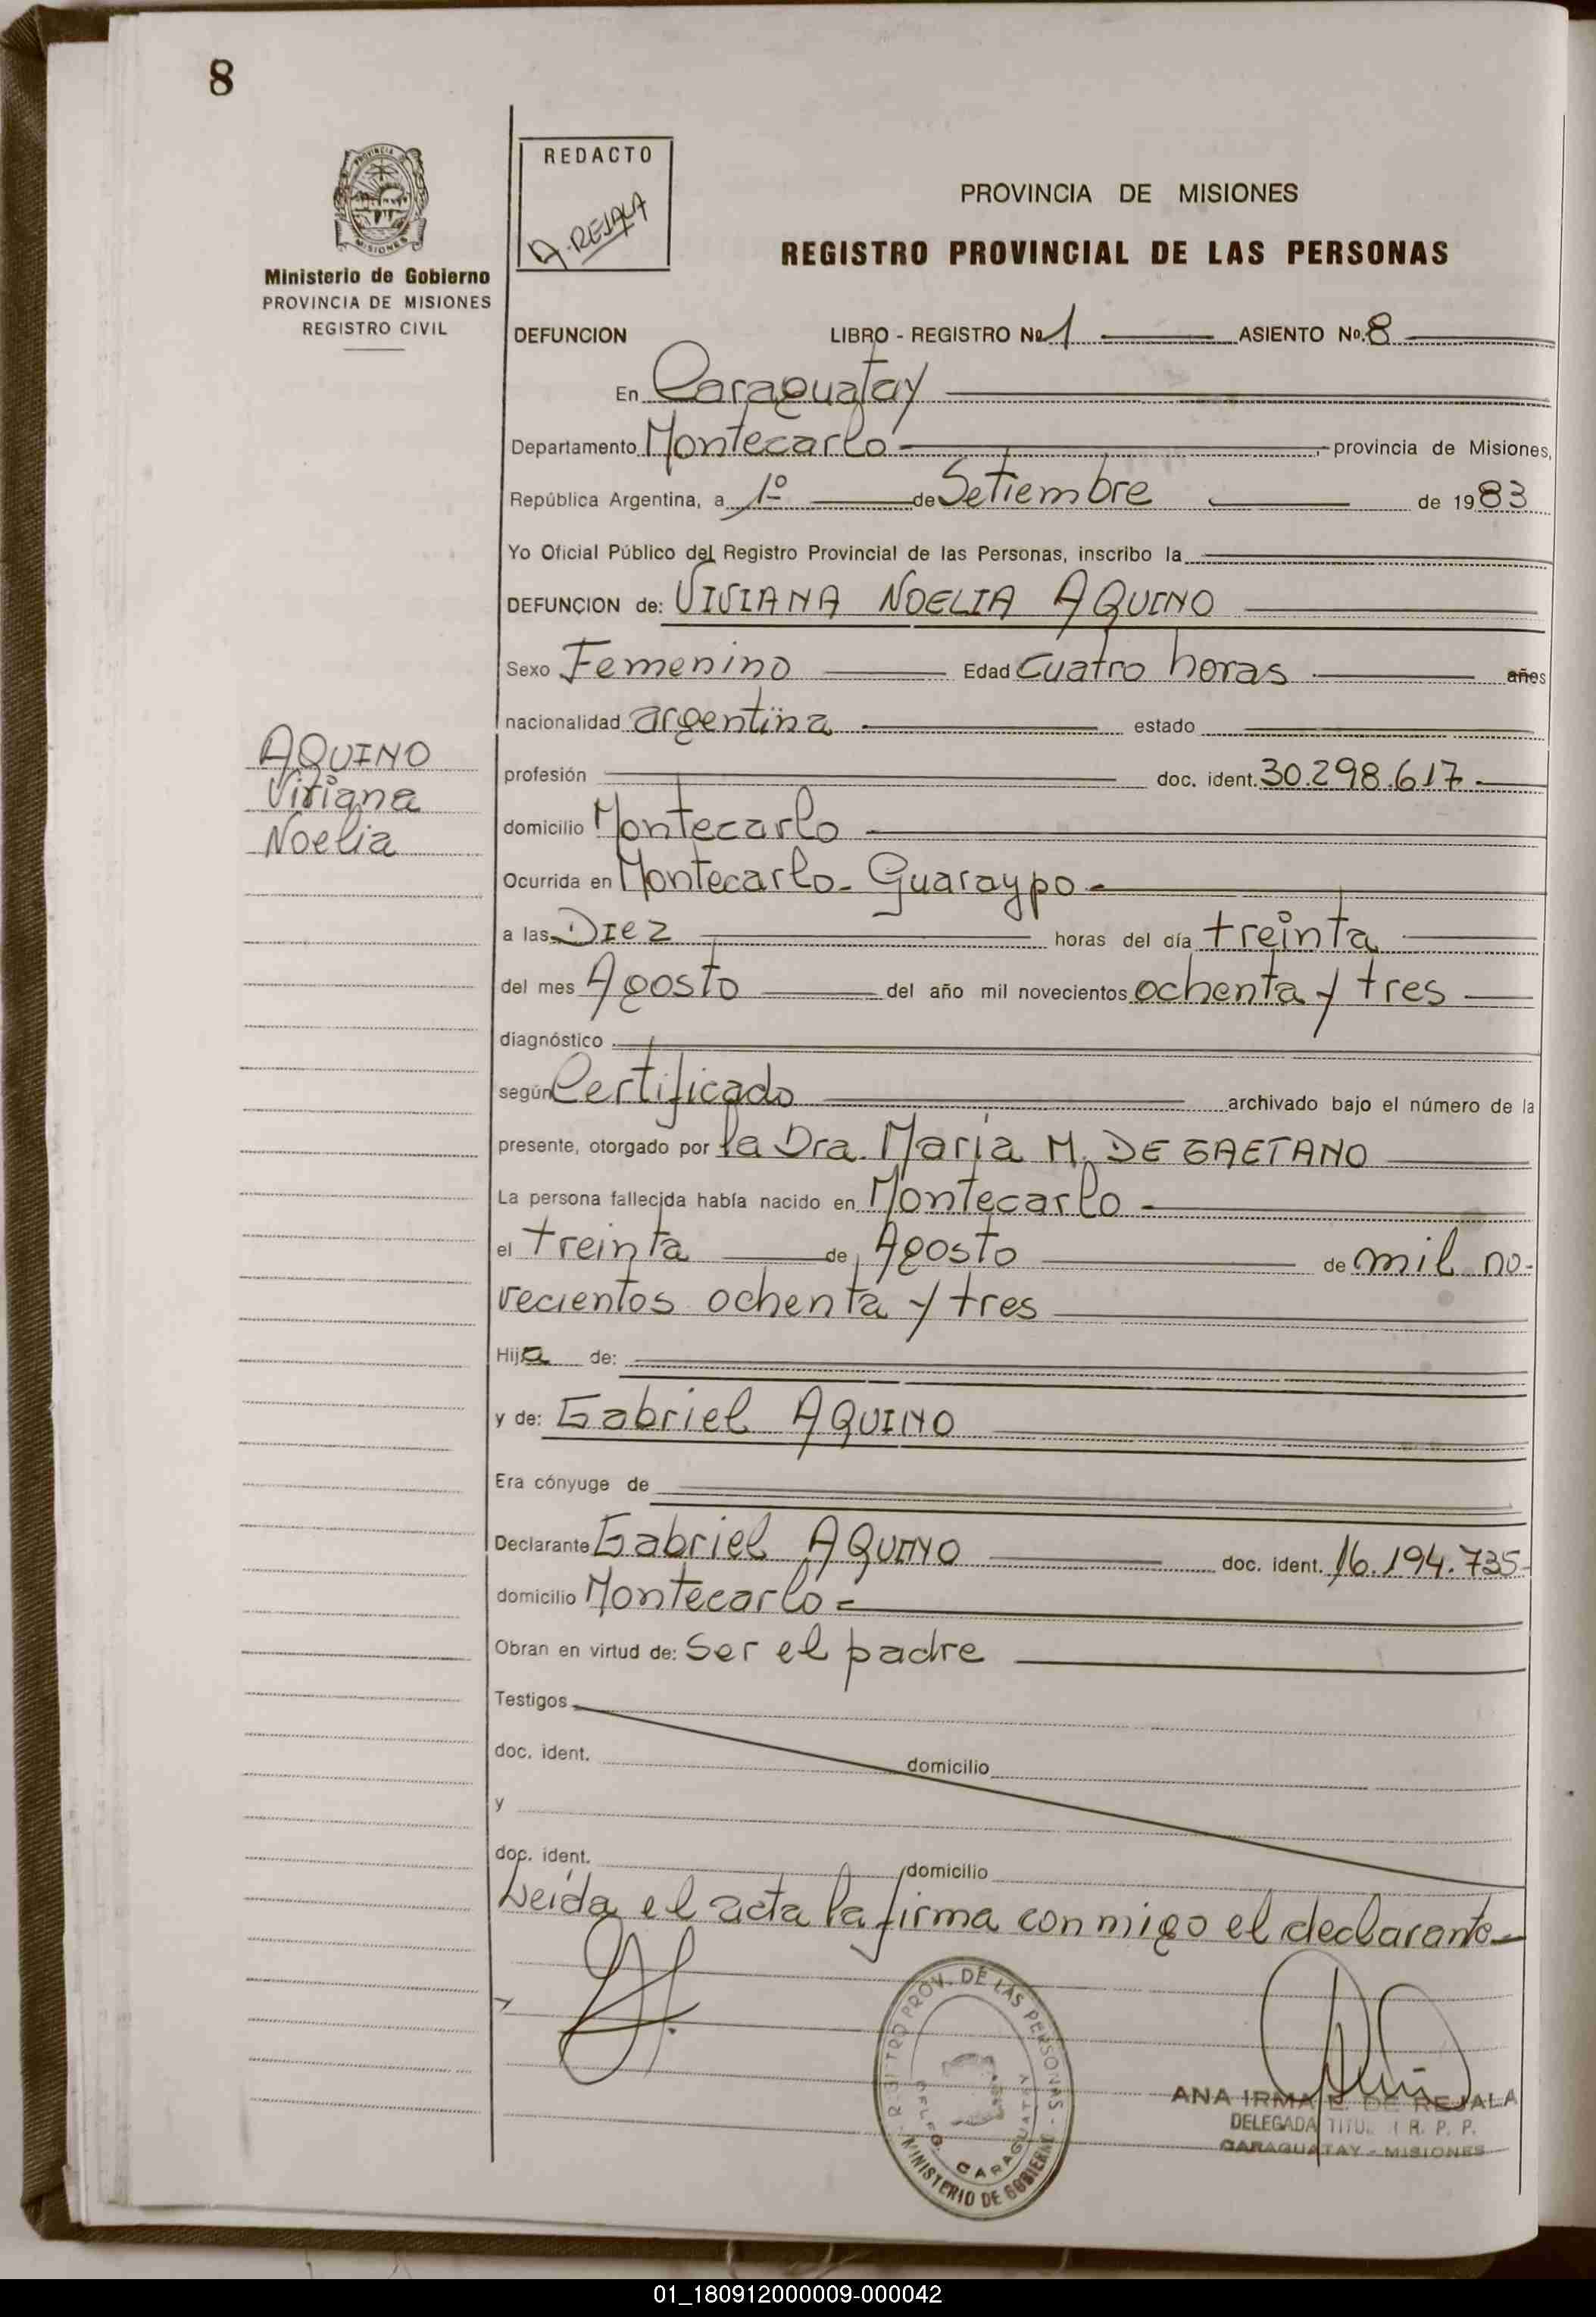 8
REDACTO
A. REJALA
PROVINCIA DE MISIONES
REGISTRO PROVINCIAL DE LAS PERSONAS
PROVINCIA
MISIONES
Ministerio de Gobierno
PROVINCIA DE MISIONES
REGISTRO CIVIL
DEFUNCION LIBRO - REGISTRO No. 1 ASIENTO No. 8
En Caraguatay
Departamento Montecarlo provincia de Misiones,
República Argentina, a 1º de Setiembre de 1983
Yo Oficial Público del Registro Provincial de las Personas, inscribo la
DEFUNCION de: VIVIANA NOELIA AQUINO
Sexo Femenino Edad cuatro horas años
nacionalidad argentina estado
AQUINO
Viviana
Noelia
profesión doc. ident. 30.298.617
domicilio Montecarlo
Ocurrida en Montecarlo - Guaraypo -
a las Diez horas del día treinta
del mes Agosto del año mil novecientos ochenta y tres
diagnóstico
según Certificado archivado bajo el número de la
presente, otorgado por la Dra. María M. DE GAETANO
La persona fallecida había nacido en Montecarlo -
el treinta de Agosto de mil no-
vecientos ochenta y tres
Hija de:
y de: Gabriel AQUINO
Era cónyuge de
Declarante Gabriel AQUINO doc. ident. 16.194.735-
domicilio Montecarlo -
Obran en virtud de: Ser el padre
Testigos
doc. ident. domicilio
y
doc. ident. domicilio
Leída el acta la firma conmigo el declarante -
REGISTRO PROV. DE LAS PERSONAS - MINISTERIO DE GOBIERNO
DELEG. CARAGUATAY
ANA IRMA E. DE REJALA
DELEGADA TITU. R. P. P.
CARAGUATAY - MISIONES
01_180912000009-000042